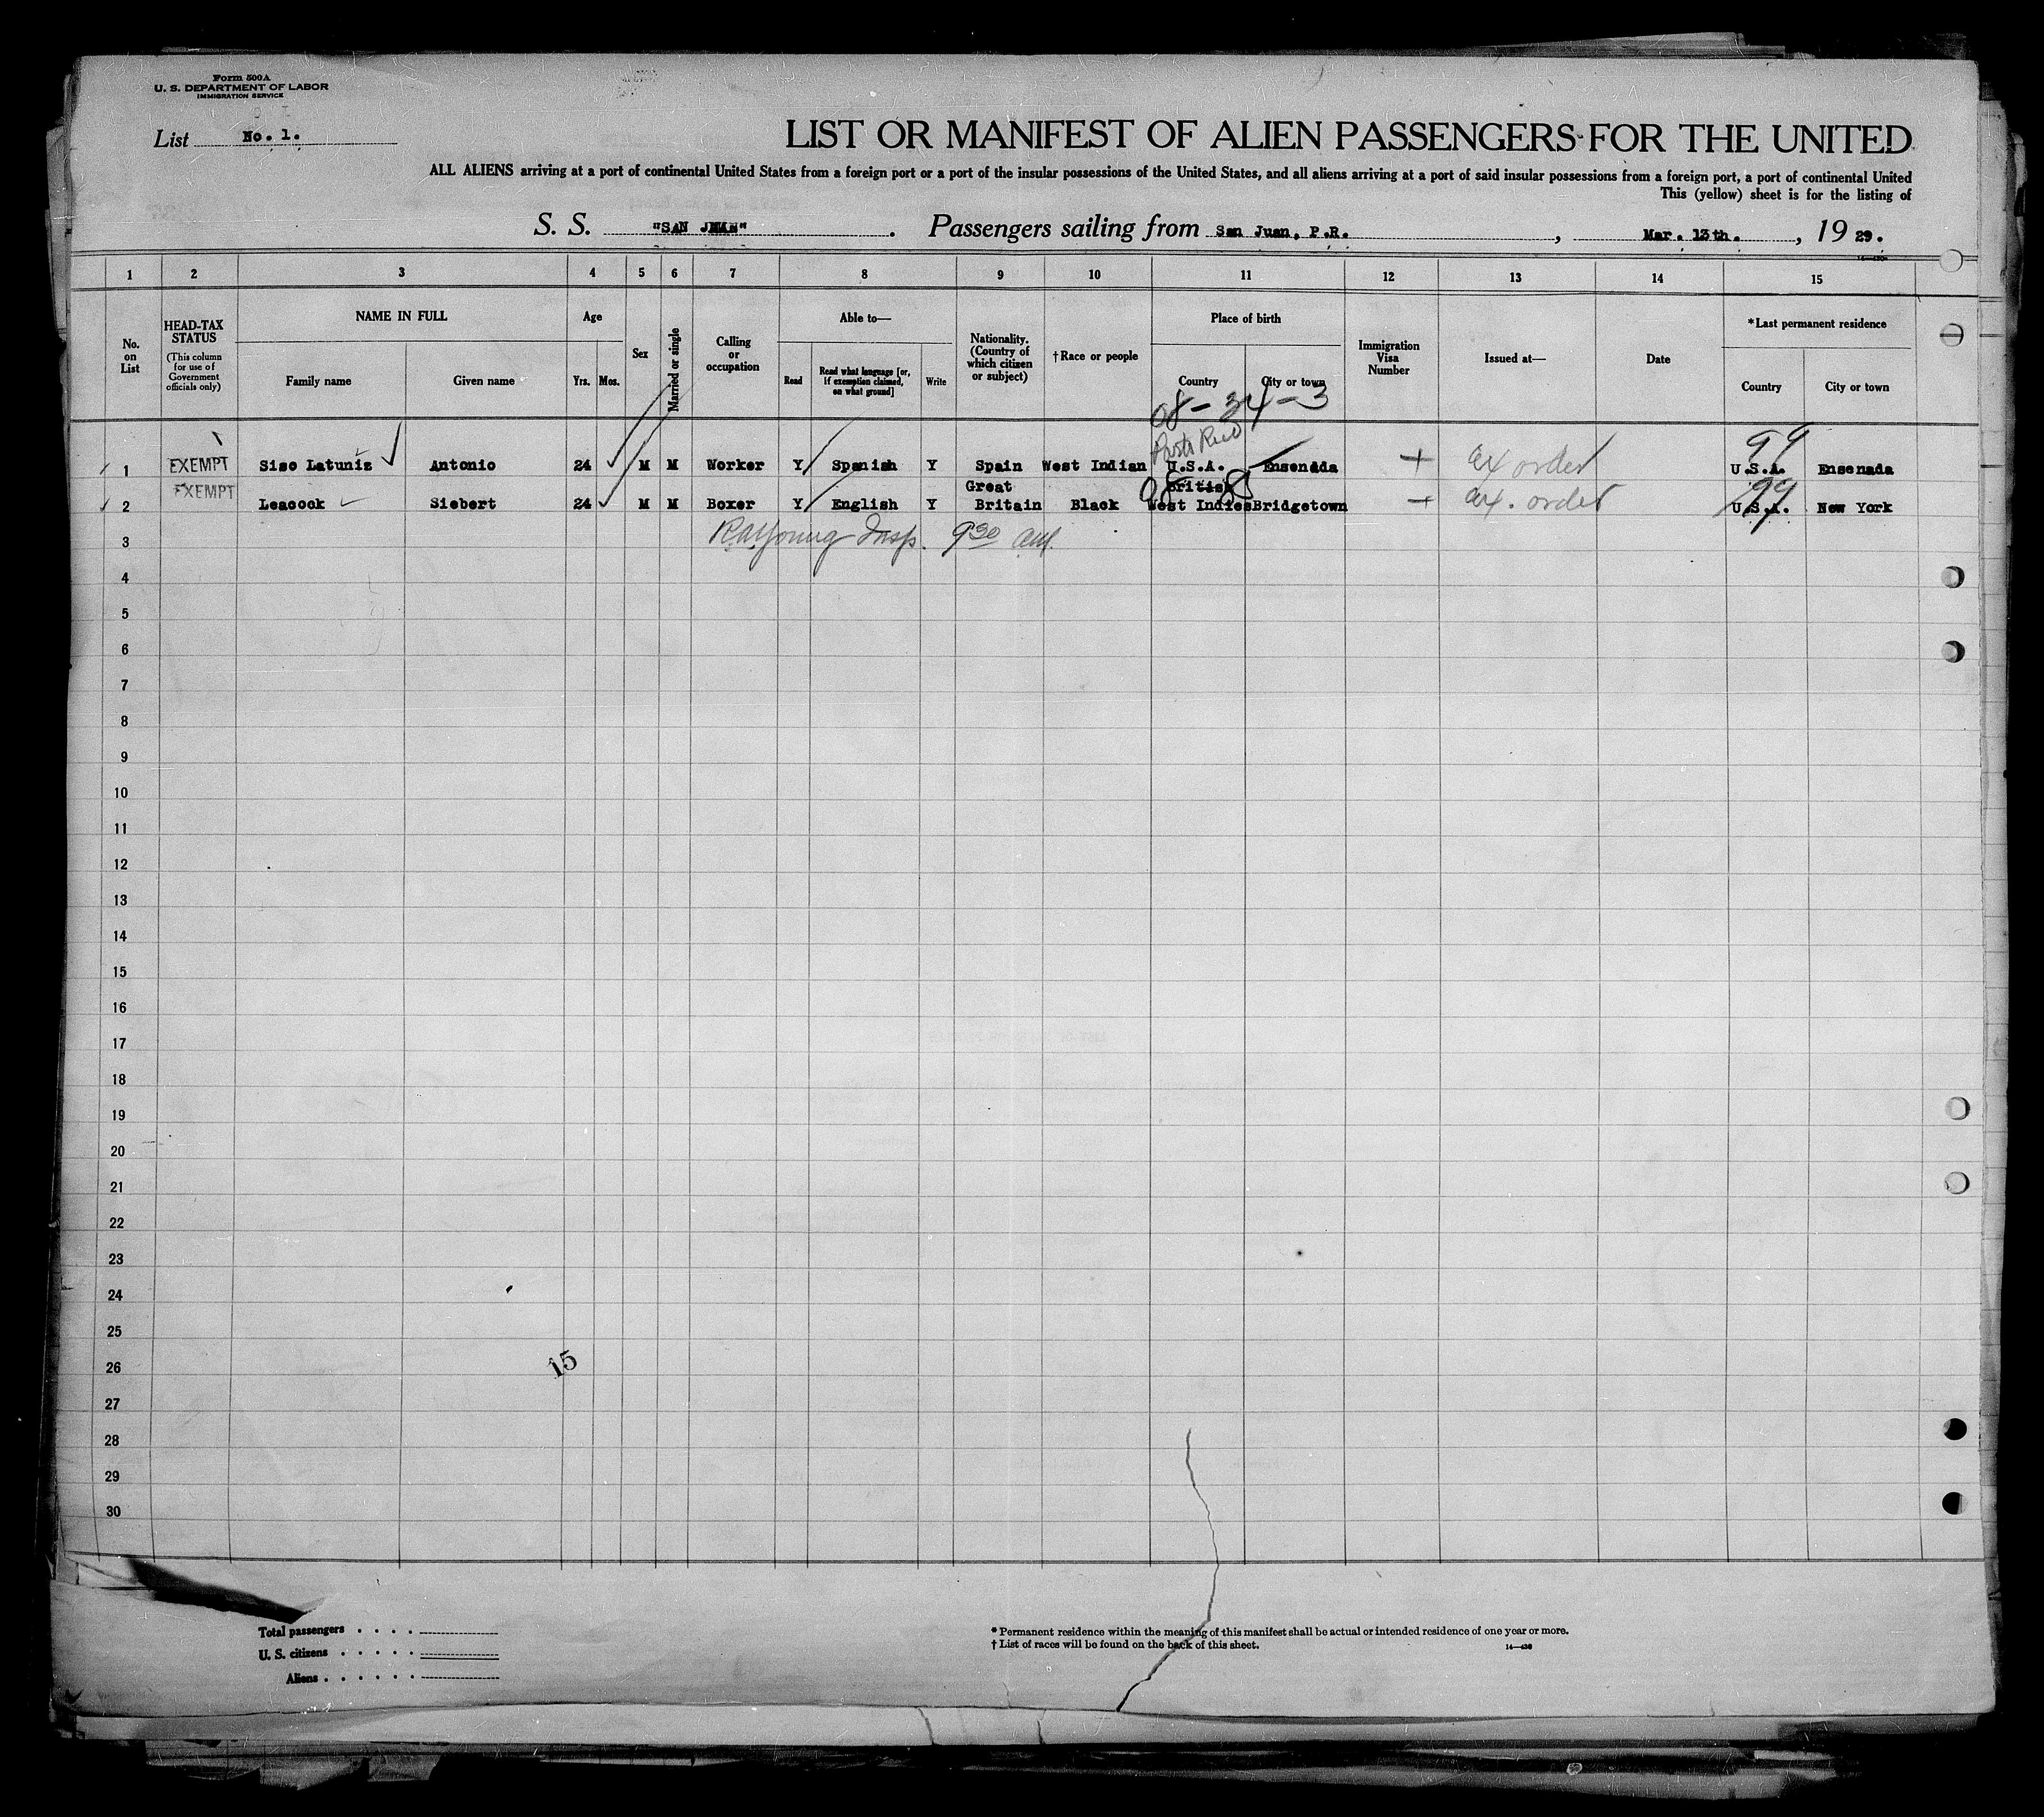 Form 500A
U. S. DEPARTMENT OF LABOR
IMMIGRATION SERVICE
List No. 1.
LIST OR MANIFEST OF ALIEN PASSENGERS FOR THE UNITED
ALL ALIENS arriving at a port of continental United States from a foreign port or a port of the insular possessions of the United States, and all aliens arriving at a port of said insular possessions from a foreign port, a port of continental United
This (yellow) sheet is for the listing of
S. S. "SAN JUAN". Passengers sailing from San Juan, P.R., Mar. 13th., 1929.
14—430
1 2 3 4 5 6 7 8 9 10 11 12 13 14 15
No. on List
HEAD-TAX STATUS
(This column for use of Government officials only)
NAME IN FULL
Family name Given name
Age
Yrs. Mos.
Sex
Married or single
Calling or occupation
Able to—
Read Read what language [or, if exemption claimed, on what ground] Write
Nationality. (Country of which citizen or subject)
†Race or people
Place of birth
Country City or town
Immigration Visa Number
Issued at—
Date
*Last permanent residence
Country City or town
08-34-3
Porto Rico 99
1 EXEMPT Siso Latuniz Antonio 24 M M Worker Y Spanish Y Spain West Indian U.S.A. Ensenada + ex order U.S.A. Ensenada
EXEMPT Great British 99
2 Leacock Siebert 24 M M Boxer Y English Y Britain Black West Indies Bridgetown ex. order U.S.A. New York
3 Young Insp. 9 30 am.
4
5
6
7
8
9
10
11
12
13
14
15
16
17
18
19
20
21
22
23
24
25
26 15
27
28
29
30
Total passengers
U. S. citizens
Aliens
* Permanent residence within the meaning of this manifest shall be actual or intended residence of one year or more.
† List of races will be found on the back of this sheet. 14—430